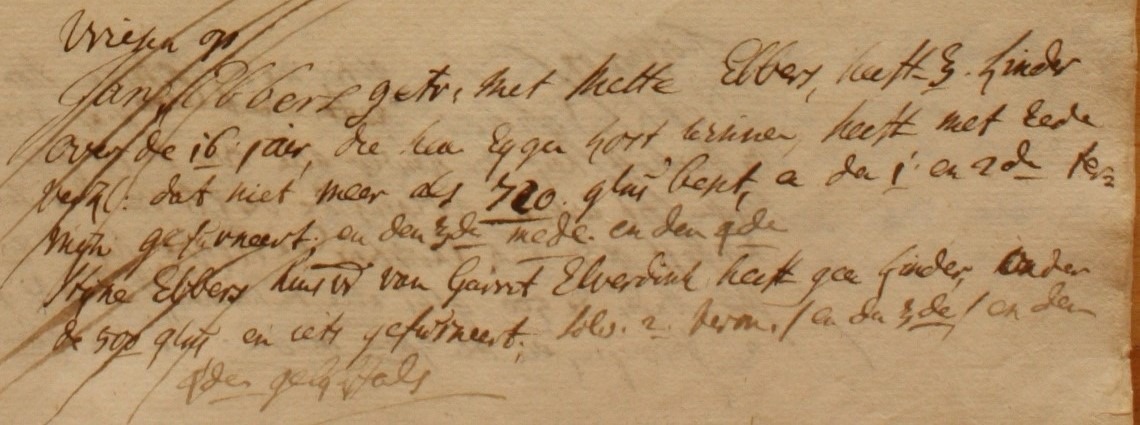 Vriesen op
Jan Ebbers getr. met Mette Ebbers, heeft 3. kinder
over de 16 jaer, die hun Eygen kost winnen, heeft met Eede
verkl: dat niet meer als 720. glns besit, en den 1. en 2de ter=
mijn gefurneert. en den 3de mede. en den 4de
Stijne Ebbers huisvr van Garrit Elverdink heeft gen kinder, onder
de 500 glns en iets gefurneert. solv. 2. term. / en den 3de / en den
4den